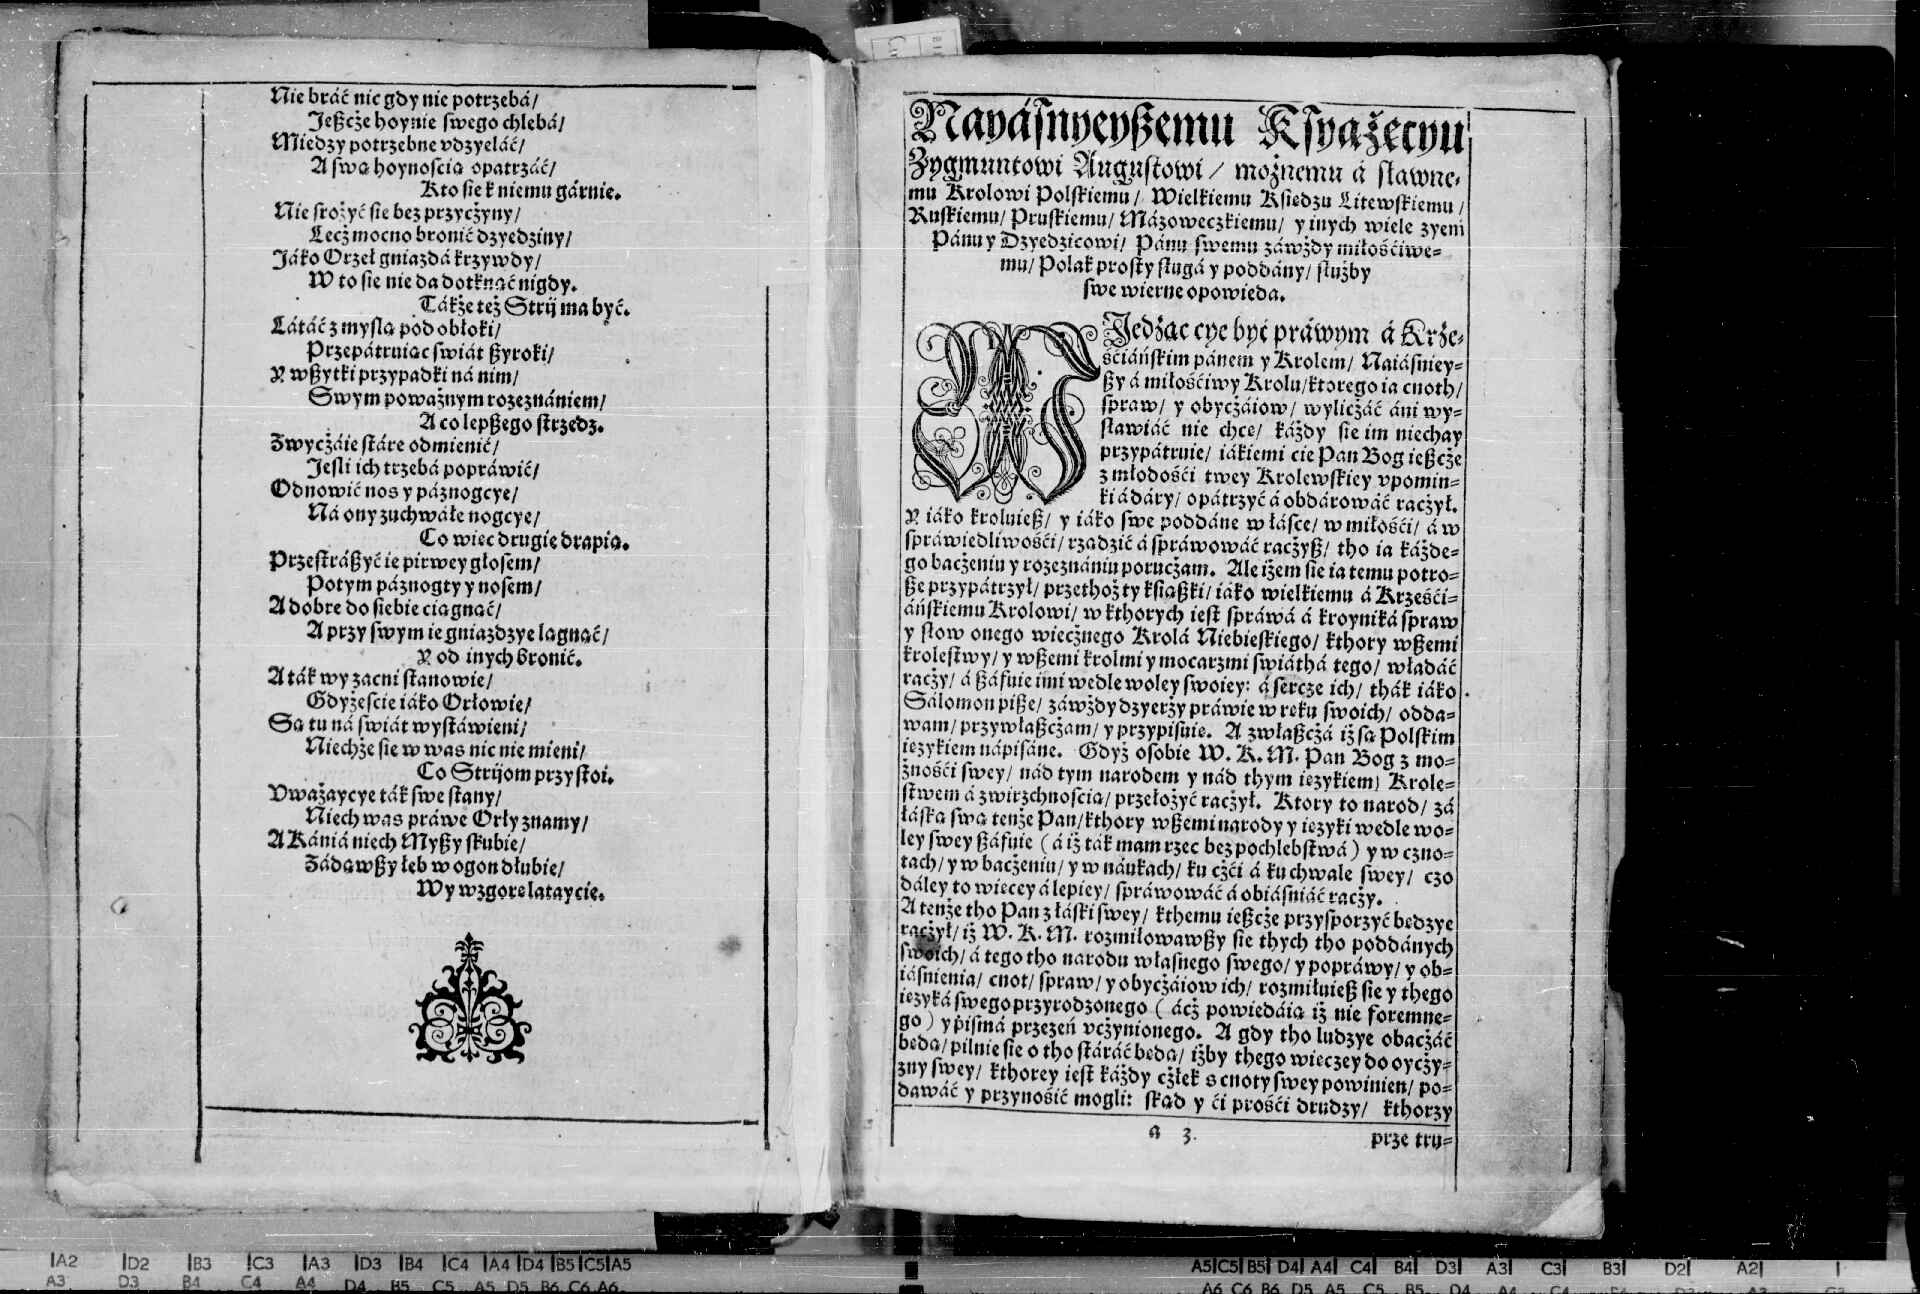 Nie bráć nic gdy nie potrzebá/
Jeßcże hoynie swego chlebá/
Miedzy potrzebne vdzyeláć/
A swą hoynoscią opatrzáć/
Kto sie k niemu gárnie.
Nie srożyć sie bez przycżyny/
Lecż mocno bronić dzyedziny/
Jáko Orzeł gniazdá krzywdy/
W to sie nie da dotknąć nigdy.
Tákże też Strij ma być.
Látáć z myslą pod obłoki/
Przepátruiąc swiát ßyroki/
Y wßytki przypadki ná nim/
Swym poważnym rozeznániem/
A co lepßego strzedz.
Zwycżáie stáre odmienić/
Jesli ich trzebá popráwić/
Odnowić nos y páznogcye/
Ná ony zuchwáłe nogcye/
Co wiec drugie drapią.
Przestráßyć ie pirwey głosem/
Potym páznogty y nosem/
A dobre do siebie ciągnąć/
A przy swym ie gniazdzye lągnąć/
Y od inych bronić.
A ták wy zacni stanowie/
Gdyżescie iáko Orłowie/
Są tu ná swiát wystáwieni/
Niechże sie w was nic nie mieni/
Co Strijom przystoi.
Vważaycye ták swe stany/
Niech was práwe Orły znamy/
A Kániá niech Myßy skubie/
Zádąwßy łeb w ogon dłubie/
Wy wzgore latáycie.
Nayásnyeyßemu Ksyążęcyu
Zygmuntowi Augustowi/ możnemu á sławne-
mu Krolowi Polskiemu/ Wielkiemu Ksiedzu Litewskiemu/
Ruskiemu/ Pruskiemu/ Mázoweczkiemu/ y inych wiele zyem
Pánu y Dzyedzicowi/ Pánu swemu záwżdy miłośćiwe-
mu/ Polak prosty sługá y poddány/ służby
swe wierne opowieda.
WJedżąc cye być práwym á Krże-
śćiáńskim pánem y Krolem/ Naiásniey-
ßy á miłośćiwy Krolu/ ktorego ia cnoth/
spraw/ y obycżáiow/ wylicżáć áni wy-
sławiáć nie chce/ káżdy sie im niechay
przypátruie/ iákiemi cie Pan Bog ießcże
z młodośći twey Krolewskiey vpomin-
ki á dáry/ opátrzyć á obdárowáć racżył.
Y iáko kroluieß/ y iáko swe poddáne w łásce/ w miłośći/ á w
spráwiedliwośći/ rządzić á spráwowáć racżyß/ tho ia káżde-
go bacżeniu y rozeznániu porucżam. Ale iżem sie ia temu potro-
ße przypátrzył/ przethoż ty książki/ iáko wielkiemu á Krześći-
áńskiemu Krolowi/ w kthorych iest spráwá á kroyniká spraw
y słow onego wiecżnego Krolá Niebieskiego/ kthory wßemi
krolestwy/ y wßemi krolmi y mocarzmi swiáthá tego/ władáć
racży/ á ßáfuie imi wedle woley swoiey: á sercze ich/ thák iáko
Sálomon piße/ záwżdy dzyerży práwie w reku swoich/ odda-
wam/ przywłaßcżam/ y przypisuie. A zwłaßcżá iż są Polskim
iezykiem nápisáne. Gdyż osobie W. K. M. Pan Bog z mo-
żnośći swey/ nád tym narodem y nád thym iezykiem/ Krole-
stwem á zwirzchnoscią/ przełożyć racżył. Ktory to narod/ zá
łáską swą tenże Pan/ kthory wßemi narody y iezyki wedle wo-
ley swey ßáfuie (á iż ták mam rzec bez pochlebstwá) y w czno-
tach/ y w bacżeniu/ y w náukach/ ku cżći á ku chwale swey/ czo
dáley to wiecey á lepiey/ spráwowáć á obiáśniáć racży.
A tenże tho Pan z łáski swey/ kthemu ießcże przysporzyć bedzye
racżył/ iż W. K. M. rozmiłowawßy sie thych tho poddánych
swoich/ á tego tho narodu własnego swego/ y popráwy/ y ob-
iáśnienia/ cnot/ spraw/ y obycżáiow ich/ rozmiłuieß sie y thego
iezyká swego przyrodzonego (ácż powiedáią iż nie foremne-
go) y pismá przezeń vcżynionego. A gdy tho ludzye obacżáć
bedą/ pilnie sie o tho stáráć bedą/ iżby thego wieczey do oycży-
zny swey/ kthorey iest káżdy cżłek s cnoty swey powinien/ po-
dawáć y przynośić mogli: skąd y ći prośći drudzy/ kthorzy
a 3.
prze tru-
A2 D2 B3 C3 A3 D3 B4 C4 A4 D4 B5 C5 A5
A3 D3 B4 C4 A4 D4 B5 C5 A5 D5 B6 C6 A6
A5 C5 B5 D4 A4 C4 B4 D3 A3 C3 B3 D2 A2
A6 C6 B6 D5 A5 C5 B5 D4 A4 C4